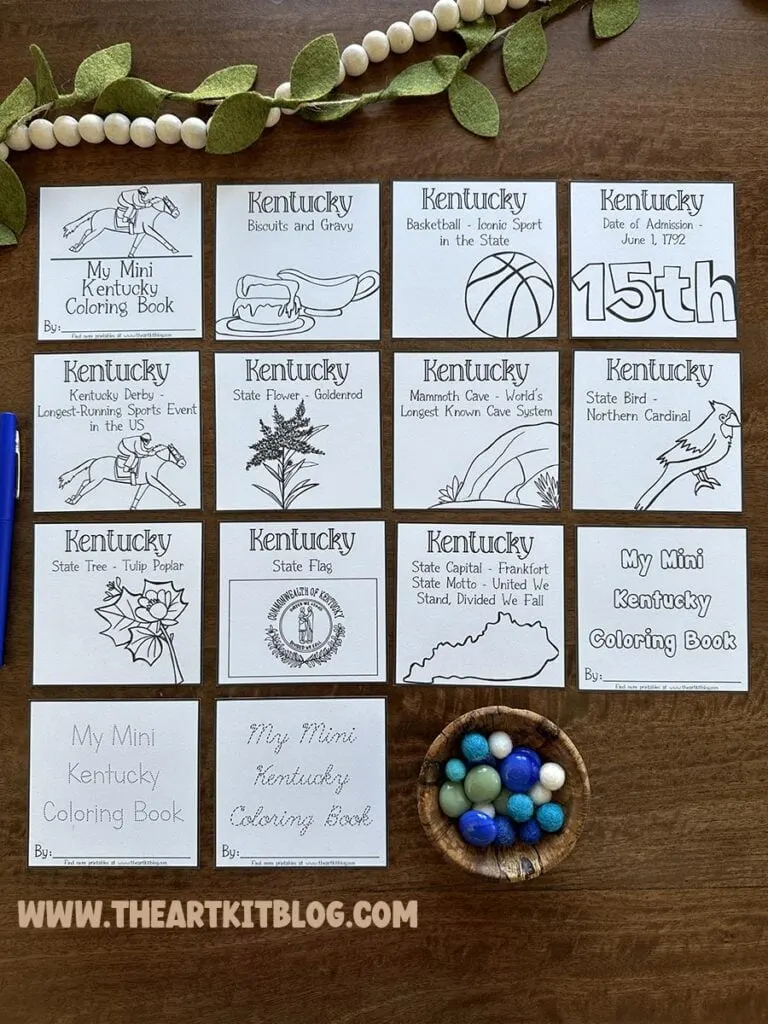 My Mini
Kentucky
Coloring Book
By:
Find more printables at www.theartkitblog.com
Kentucky
Biscuits and Gravy
Kentucky
Basketball - Iconic Sport
in the State
Kentucky
Date of Admission -
June 1, 1792
15th
Kentucky
Kentucky Derby -
Longest-Running Sports Event
in the US
Kentucky
State Flower - Goldenrod
Kentucky
Mammoth Cave - World's
Longest Known Cave System
Kentucky
State Bird -
Northern Cardinal
Kentucky
State Tree - Tulip Poplar
Kentucky
State Flag
COMMONWEALTH OF KENTUCKY
UNITED WE STAND
DIVIDED WE FALL
Kentucky
State Capital - Frankfort
State Motto - United We
Stand, Divided We Fall
My Mini
Kentucky
Coloring Book
By:
Find more printables at www.theartkitblog.com
My Mini
Kentucky
Coloring Book
By:
Find more printables at www.theartkitblog.com
My Mini
Kentucky
Coloring Book
By:
Find more printables at www.theartkitblog.com
WWW.THEARTKITBLOG.COM